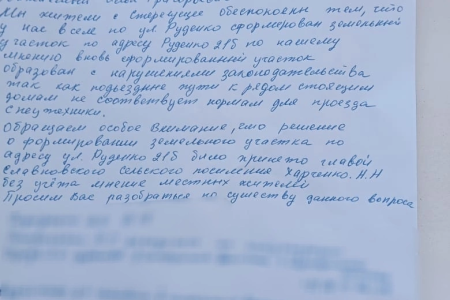 Мы жители с Стерегущее обеспокоены тем, что
у нас в селе по ул Руденко сформирован земельный
участок по адресу Руденко 21б по нашему
мнению вновь сформированный участок
образован с нарушениями законодательства
так как подъездные пути к рядом стоящим
домам не соотвествует нормам для проезда
спецтехники.
Обращаем особое внимание, что решение
о формировании земельного участка по
адресу ул. Руденко 21б было принято главой
Славновского сельского поселения Харченко. Н.Н
без учёта мнение местных жителей
Просим Вас разобраться по существу данного вопроса